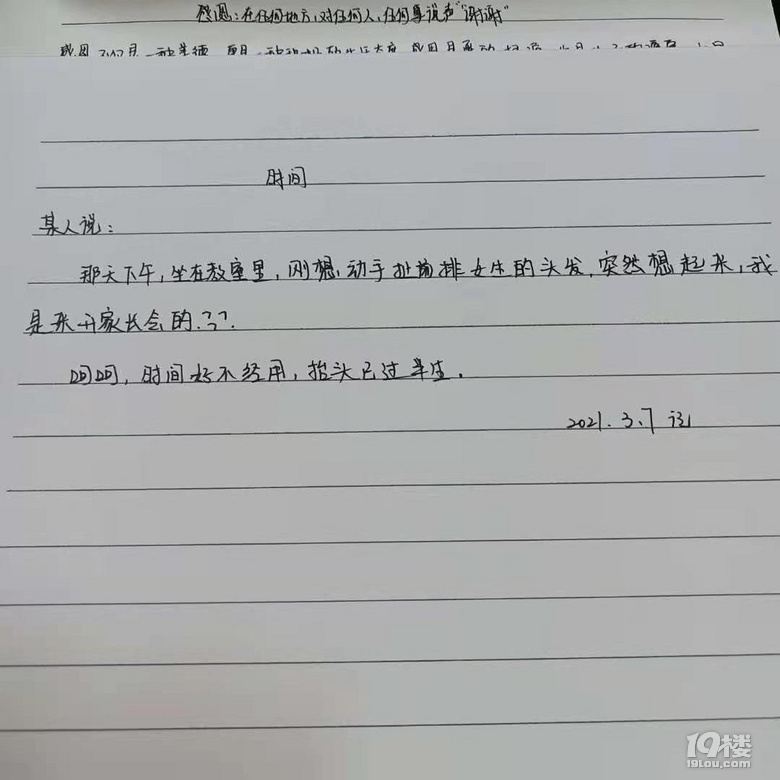 感恩：在任何地方，对任何人，任何事说声“谢谢”
时间
某人说：
那天下午，坐在教室里，刚想动手扯前排女生的头发，突然想起来，我
是来开家长会的.？？.
呵呵，时间好不经用，抬头已过半生.
2021.3.7 记
19楼
19lou.com